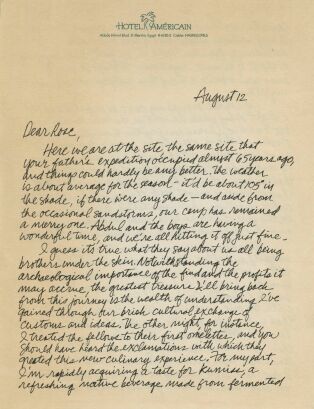 HOTEL AMÉRICAIN
August 12
Dear Rose,
Here we are at the site, the same site that
your father's expedition occupied almost 65 years ago,
and things could hardly be any better. The weather
is about average for the season - it'd be about 105° in
the shade, if there were any shade - and aside from
the occasional sandstorms, our camp has remained
a merry one. Abdul and the boys are having a
wonderful time, and we're all hitting it off just fine.
I guess it's true what they say about us all being
brothers under the skin. Notwithstanding the
archaeological importance of the find and the profits it
may accrue, the greatest treasure I'll bring back
from this journey is the wealth of understanding I've
gained through our brisk cultural exchange of
customs and ideas. The other night, for instance,
I treated the fellows to their first omelettes, and you
should have heard the exclamations with which they
greeted this new culinary experience. For my part,
I'm rapidly acquiring a taste for Kumiss, a
refreshing native beverage made from fermented